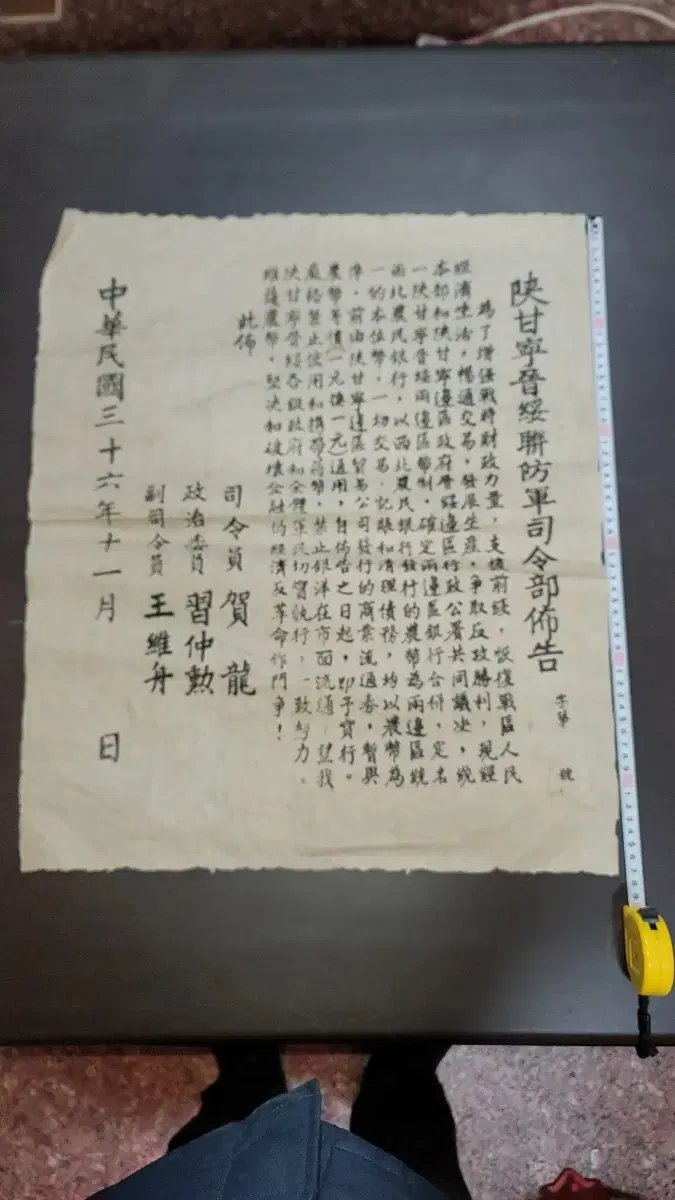 陝甘寧晉綏聯防軍司令部佈告
字第 號
為了增强戰時財政力量，支援前綫，恢復戰區人民
經濟生活，暢通交易，發展生產，爭取反攻勝利，現經
本部和陝甘寧邊區政府晉綏邊區行政公署共同議决，統
一陝甘寧晉綏兩邊區幣制，確定兩邊區銀行合併，定名
西北農民銀行，以西北農民銀行發行的農幣為兩邊區統
一的本位幣，一切交易．記賬和清理債務，均以農幣為
準．前由陝甘寧邊區貿易公司發行的商業流通券，暫與
農幣等價(一元換一元)通用，自佈告之日起，即予實行。
嚴格禁止使用和携帶蔣幣，禁止銀洋在市面流通，望我
陝甘寧晉綏各級政府和全體軍民切實執行，一致努力。
維護農幣，堅决和破壞金融的經濟反革命作鬥爭！
此佈
司令員 賀龍
政治委員 習仲勲
副司令員 王維舟
中華民國三十六年十一月 日